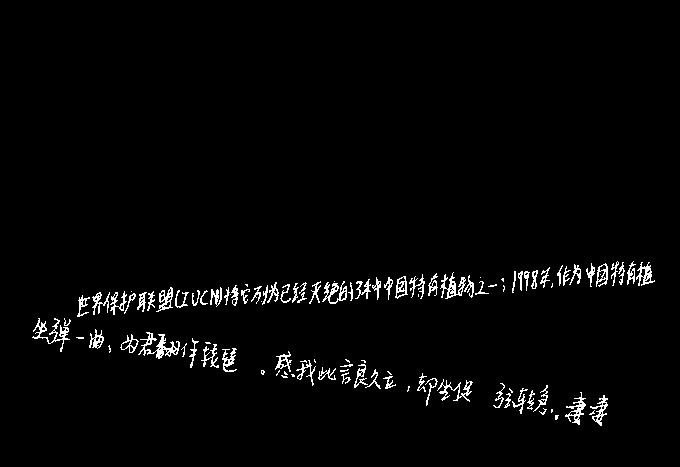 世界保护联盟(IUCN)将它列为已经灭绝的3种中国特有植物之一；1998年,作为中国特有植
坐弹一曲，为君翻作琵琶。感我此言良久立，却坐促弦转急。妻妻